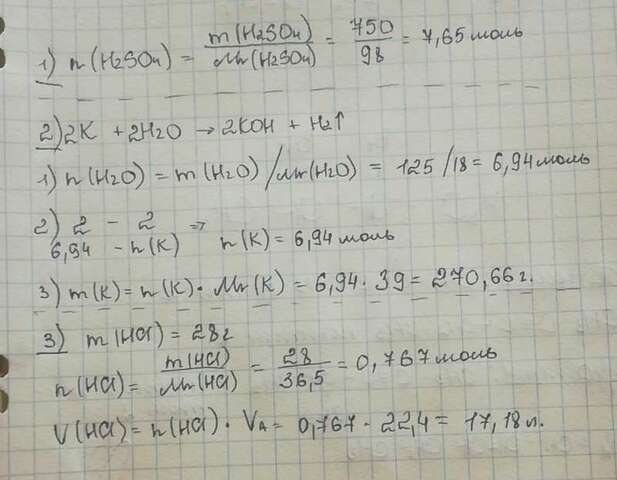 1) n(H2SO4) = m(H2SO4)/Mr(H2SO4) = 750/98 = 7,65 моль
2) 2K + 2H2O → 2KOH + H2↑
1) n(H2O) = m(H2O)/Mr(H2O) = 125/18 = 6,94 моль
2) 2 – 2 ⇒
6,94 – n(K) n(K) = 6,94 моль
3) m(K) = n(K)·Mr(K) = 6,94·39 = 270,66 г.
3) m(HCl) = 28 г
n(HCl) = m(HCl)/Mr(HCl) = 28/36,5 = 0,767 моль
V(HCl) = n(HCl)·VA = 0,767·22,4 = 17,18 л.